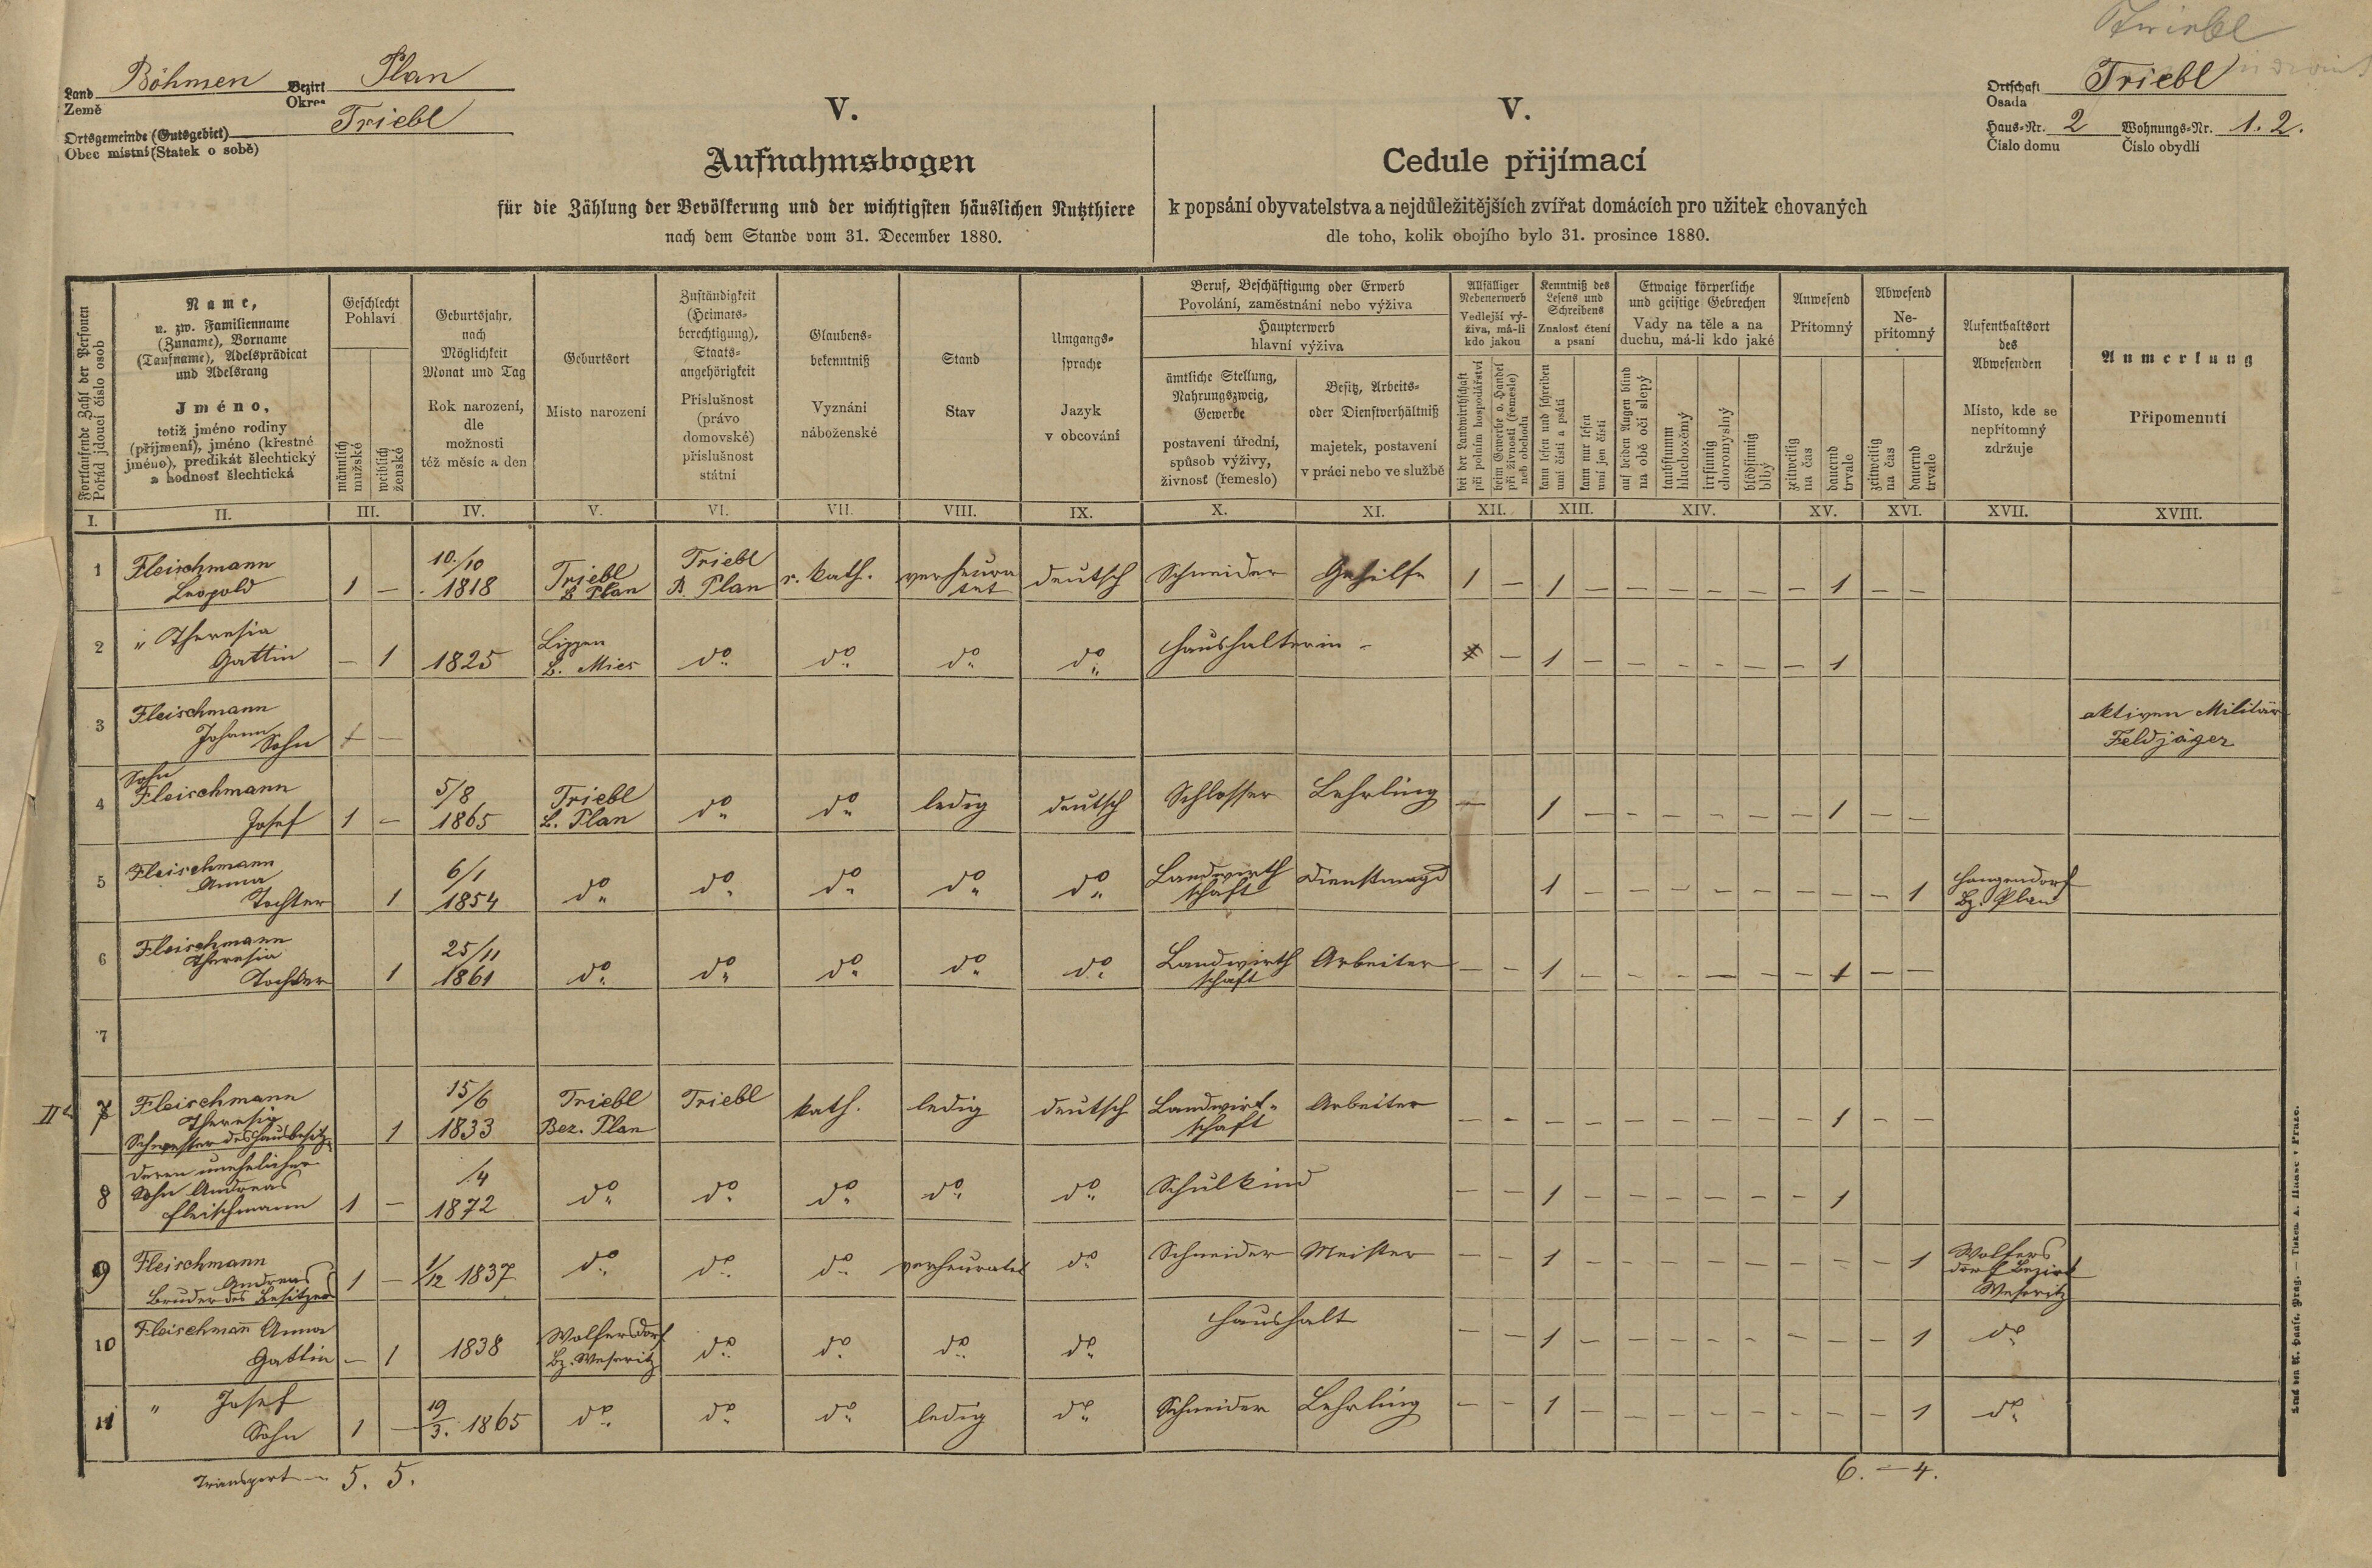 Triebl
Land Böhmen Bezirk Plan
Země Okres
Ortsgemeinde (Gutsgebiet) Triebl
Obec místní (Statek o sobě)
Ortschaft Triebl
Osada
Haus-Nr. 2 Wohnungs-Nr. 1. 2.
Číslo domu Číslo obydlí
V.
Aufnahmsbogen
für die Zählung der Bevölkerung und der wichtigsten häuslichen Nutzthiere
nach dem Stande vom 31. December 1880.
V.
Cedule přijímací
k popsání obyvatelstva a nejdůležitějších zvířat domácích pro užitek chovaných
dle toho, kolik obojího bylo 31. prosince 1880.
Fortlaufende Zahl der Personen
Pořád jdoucí číslo osob
Name,
u. zw. Familienname
(Zuname), Vorname
(Taufname), Adelsprädicat
und Adelsrang
Jméno,
totiž jméno rodiny
(příjmení), jméno (křestné
jméno), predikát šlechtický
a hodnosť šlechtická
Geschlecht
Pohlaví
männlich
mužské
weiblich
ženské
Geburtsjahr,
nach
Möglichkeit
Monat und Tag
Rok narození,
dle
možnosti
též měsíc a den
Geburtsort
Místo narození
Zuständigkeit
(Heimats-
berechtigung),
Staats-
angehörigkeit
Příslušnost
(právo
domovské)
příslušnost
státní
Glaubens-
bekenntniß
Vyznání
náboženské
Stand
Stav
Umgangs-
sprache
Jazyk
v obcování
Beruf, Beschäftigung oder Erwerb
Povolání, zaměstnání nebo výživa
Haupterwerb
hlavní výživa
ämtliche Stellung,
Nahrungszweig,
Gewerbe
postavení úřední,
spůsob výživy,
živnosť (řemeslo)
Besitz, Arbeits-
oder Dienstverhältniß
majetek, postavení
v práci nebo ve službě
Allfälliger
Nebenerwerb
Vedlejší vý-
živa, má-li
kdo jakou
bei der Landwirthschaft
při polním hospodářství
beim Gewerbe o. Handel
při živnosti (řemesle)
neb obchodu
Kenntniß des
Lesens und
Schreibens
Znalosť čtení
a psaní
kann lesen und schreiben
umí čísti a psáti
kann nur lesen
umí jen čísti
Etwaige körperliche
und geistige Gebrechen
Vady na těle a na
duchu, má-li kdo jaké
auf beiden Augen blind
na obě oči slepý
taubstumm
hluchoněmý
irrsinnig
choromyslný
blödsinnig
blbý
Anwesend
Přítomný
zeitweilig
na čas
dauernd
trvale
Abwesend
Ne-
přítomný
zeitweilig
na čas
dauernd
trvale
Aufenthaltsort
des
Abwesenden
Místo, kde se
nepřítomný
zdržuje
Anmerkung
Připomenutí
I. II. III. IV. V. VI. VII. VIII. IX. X. XI. XII. XIII. XIV. XV. XVI. XVII. XVIII.
1 Fleischmann Leopold 1 – 10./10 1818 Triebl B Plan Triebl B. Plan r. kath. verheuratet deutsch Schneider Gehilfe 1 – 1 – – – – – – 1 – –
2 „ Theresia Gattin – 1 1825 Lippen B. Mies do do do do Haushalterin – – 1 – – – – – – 1
3 Fleischmann Johann Sohn – aktiven Militär Feldjäger
4 Sohn Fleischmann Josef 1 – 5/8 1865 Triebl B. Plan do do ledig deutsch Schlosser Lehrling – 1 – – – – – – 1 – –
5 Fleischmann Anna Tochter 1 6/1 1854 do do do do do Landwirthschaft Dienstmagd 1 – – – – – – – – 1 Hangendorf Bz. Plan
6 Fleischmann Theresia Tochter 1 25/11 1861 do do do do do Landwirthschaft Arbeiter – – 1 – – – – – – 1 – –
7
II 7 Fleischmann Theresia Schwester des Hausbesitz. 1 15/6 1833 Triebl Bez. Plan Triebl kath. ledig deutsch Landwirtschaft Arbeiter – – – – – – – – – 1 – –
8 deren unehelicher Sohn Andreas Fleischmann 1 – /4 1872 do do do do do Schulkind – – 1 – – – – – – 1
9 Fleischmann Andreas Bruder des Besitzers 1 – 1/12 1837 do do do verheuratet do Schneider Meister – – 1 – – – – – – – – 1 Wolfersdorf Bezirk Weseritz
10 Fleischmann Anna Gattin – 1 1838 Wolfersdorf Bz. Weseritz do do do do Haushalt – – 1 – – – – – – – – 1 do
11 „ Josef Sohn 1 – 19/3. 1865 do do do ledig do Schneider Lehrling – – 1 – – – – – – – – 1 do
Transport – 5. 5. 6. – 4.